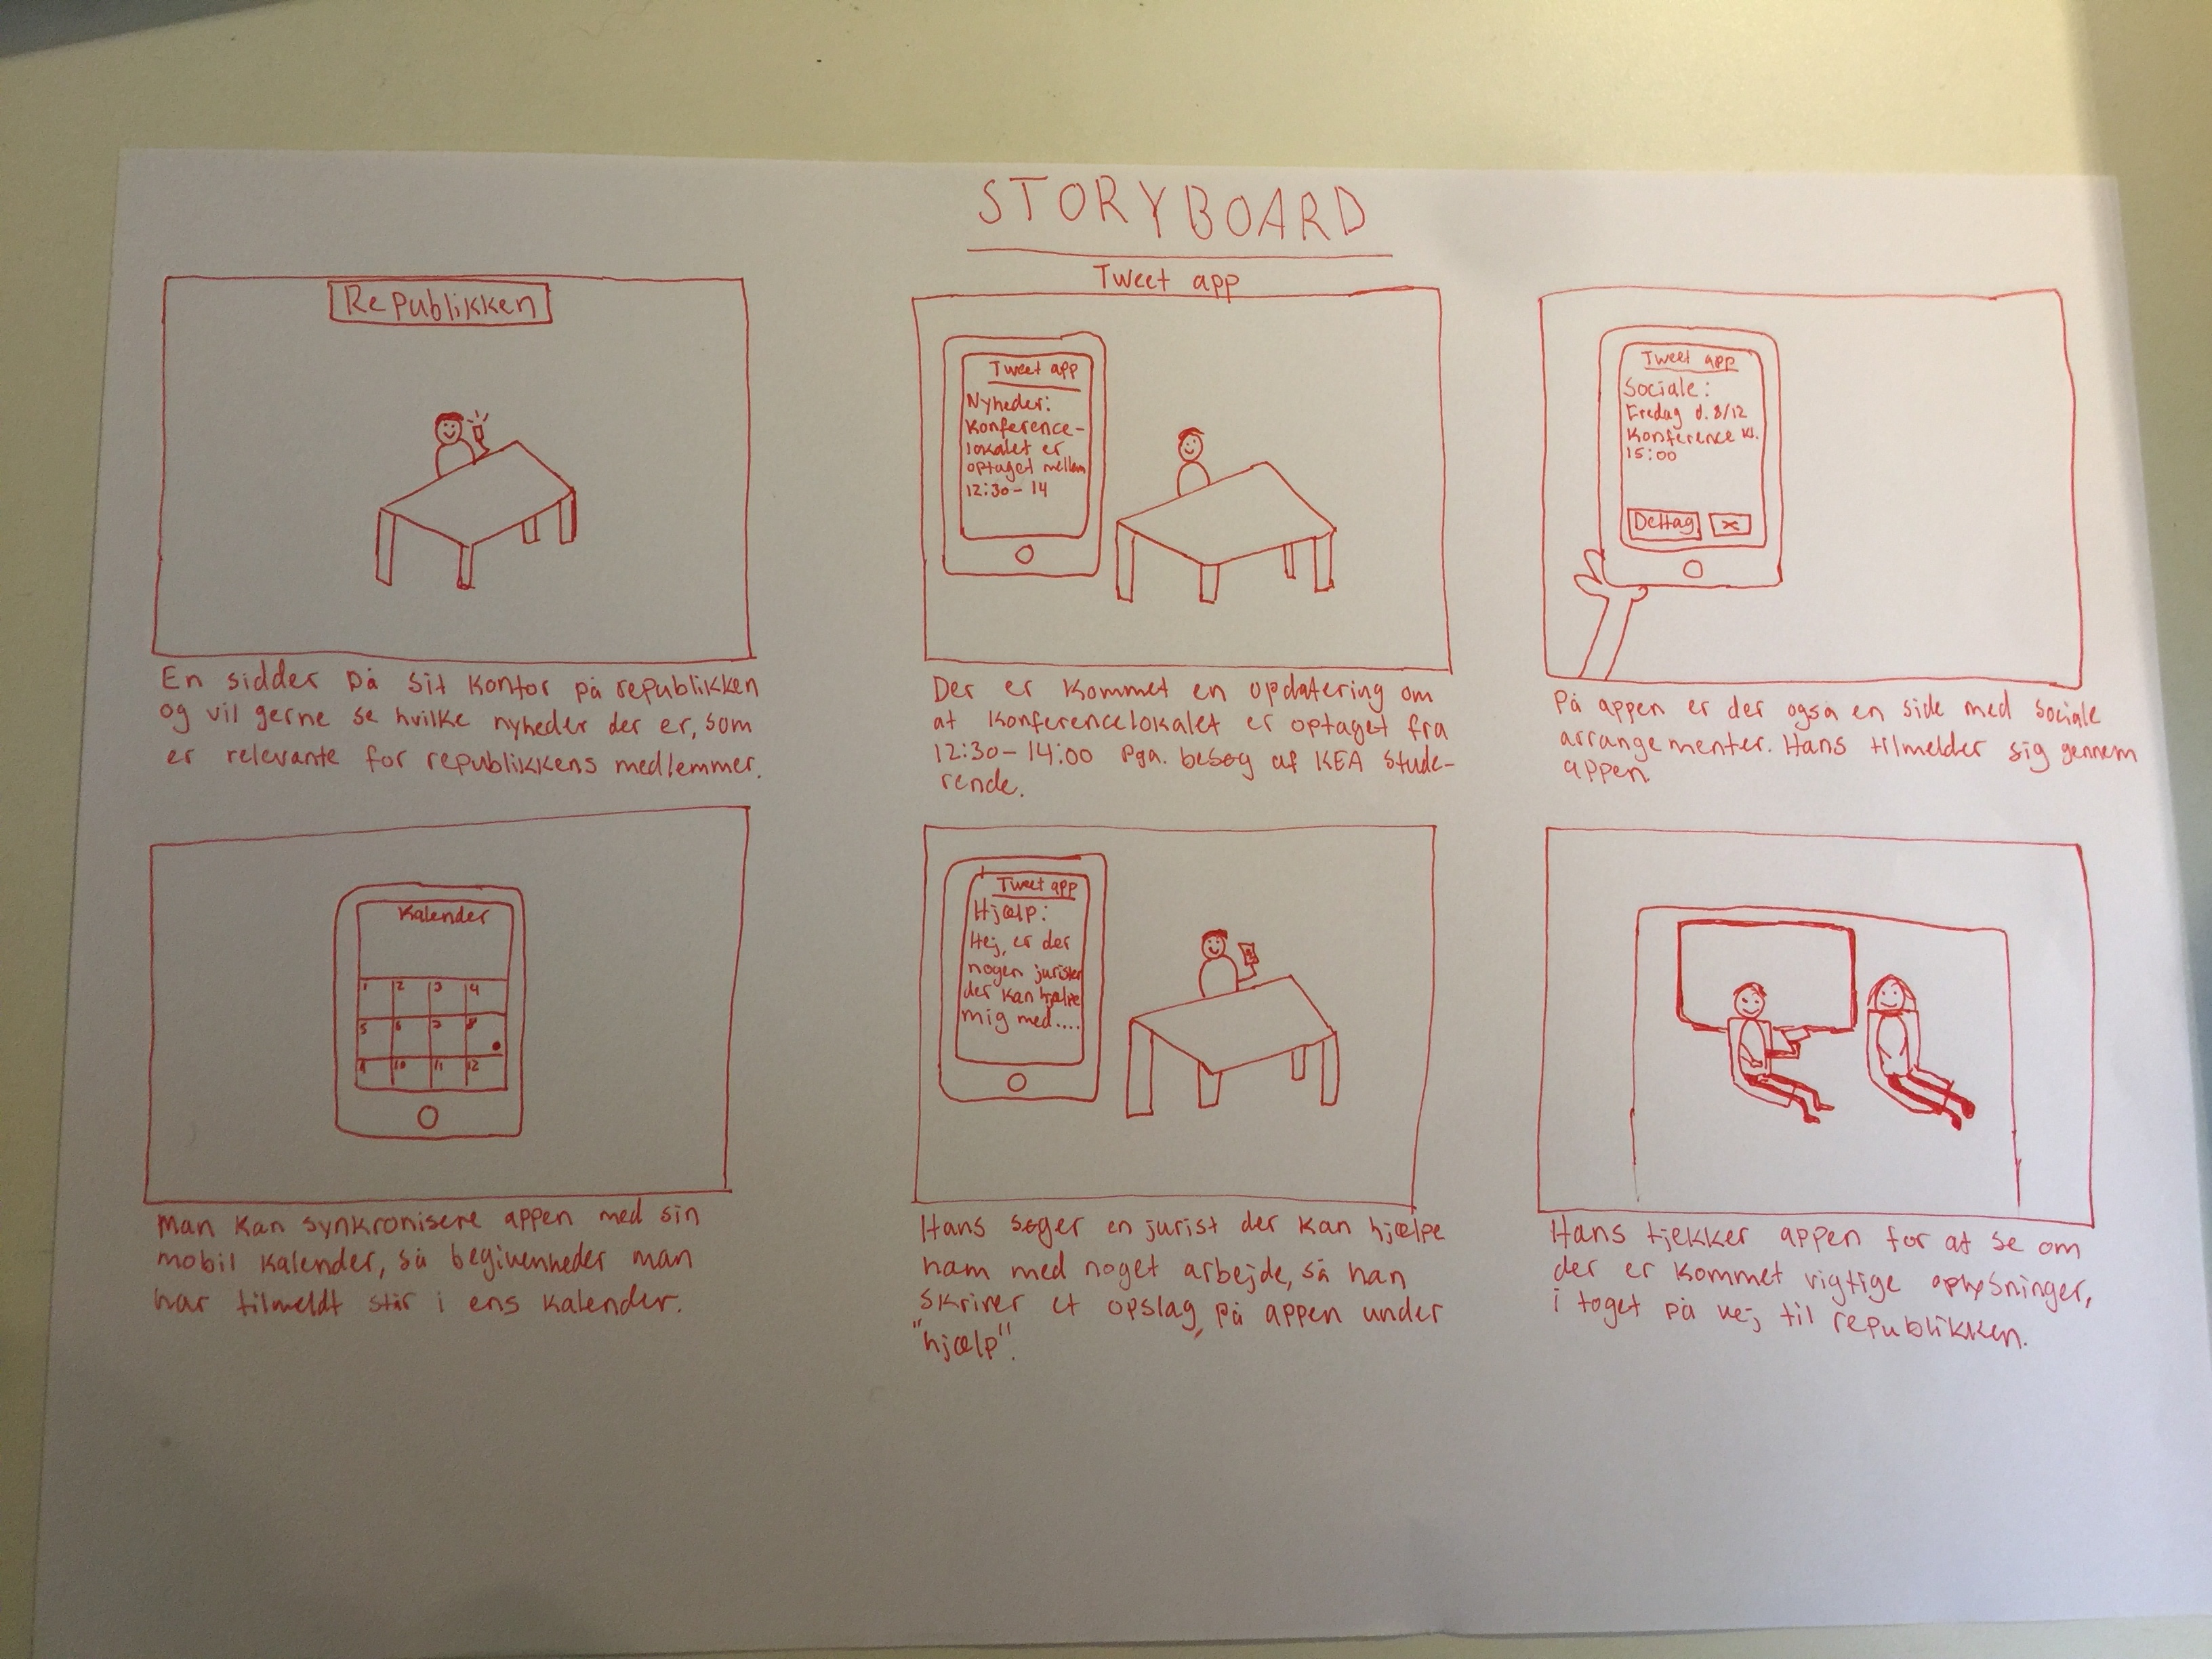 STORYBOARD
Tweet app
Republikken
En sidder på sit kontor på republikken
og vil gerne se hvilke nyheder der er, som
er relevante for republikkens medlemmer.
Tweet app
Nyheder:
Konference-
lokalet er
optaget mellem
12:30-14
Der er kommet en updatering om
at konferencelokalet er optaget fra
12:30-14:00 pga. besøg af KEA stude-
rende.
Tweet app
Sociale:
Fredag d. 8/12
Konference kl.
15:00
Deltag
x
På appen er der også en side med sociale
arrangementer. Hans tilmelder sig gennem
appen.
Kalender
1 2 3 4
5 6 7 8
9 10 11 12
Man kan synkronisere appen med sin
mobil kalender, så begivenheder man
har tilmeldt står i ens kalender.
Tweet app
Hjælp:
Hej, er der
nogen jurister
der kan hjælpe
mig med....
Hans søger en jurist der kan hjælpe
ham med noget arbejde, så han
skriver et opslag, på appen under
"hjælp".
Hans tjekker appen for at se om
der er kommet vigtige oplysninger,
i toget på vej til republikken.